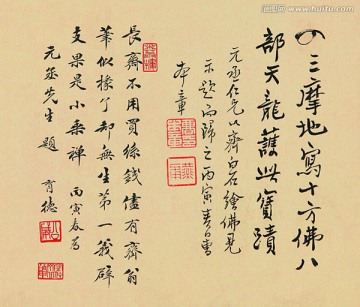 以三摩地寫十方佛八
部天龍護此寶蹟
元丞仁兄以齊白石繪佛見
示題而歸之丙寅春日曹
本章
長齋不用買絲錢儘有齋翁
筆似椽了卻無生第一義辟
支果是小乘禪 丙寅春為
元丞先生題 育德